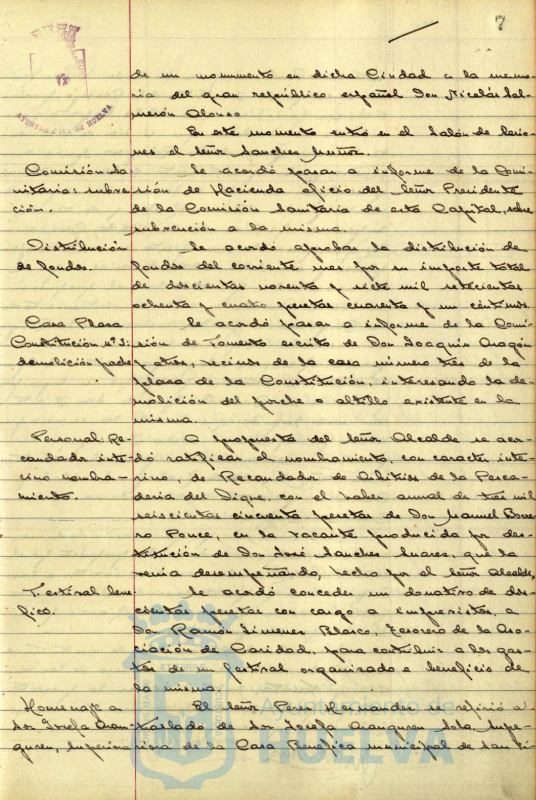 7
AYUNTAMIENTO DE HUELVA
de un monumento en dicha Ciudad a la memo-
ria del gran repúblico español Don Nicolás Sal-
merón Alonso
En este momento entró en el Salón de Sesio-
nes el Señor Sanchez Muñoz.
Comisión Sa-
nitaria: subven-
ción.
Se acordó pasar a informe de la Comi-
sión de Hacienda oficio del Señor Presidente
de la Comisión Sanitaria de esta Capital, sobre
subvención a la misma.
Distribución
de fondos.
Se acordó aprobar la distribución de
fondos del corriente mes por su importe total
de doscientas noventa y siete mil setecientas
ochenta y cuatro pesetas cuarenta y un céntimos
Casa Plaza
Constitución nº 3:
demolición
Se acordó pasar a informe de la Comi-
sión de Fomento escrito de Don Joaquín Aragón
y otros, vecinos de la casa número tres de la
plaza de la Constitución, interesando la de-
molición del porche o altillo existente en la
misma.
Personal: Re-
caudador inte-
rino nombra-
miento.
A propuesta del Señor Alcalde se acor-
dó ratificar el nombramiento, con caracter inte-
rino, de Recaudador de Arbitrios de la Pesca-
deria del Dique, con el haber anual de tres mil
seiscientas cincuenta pesetas de Don Manuel Borre-
ro Ponce, en la vacante producida por des-
titución de Don José Sanchez Suarez, que la
venia desempeñando, hecho por el Señor Alcalde.
Festival bené-
fico.
Se acordó conceder un donativo de dos-
cientas pesetas con cargo a imprevistos, a
Don Ramón Jimenez Blasco, Tesorero de la Aso-
ciación de Caridad, para contribuir a los gas-
tos de un festival organizado a beneficio de
la misma.
Homenaje a
Sor Josefa Aran-
guren, Superiora
El Señor Perez Hernandez se refirió al
traslado de Sor Josefa Aranguren Sota, Supe-
riora de la Casa Benéfica municipal de
Ayuntamiento de
HUELVA